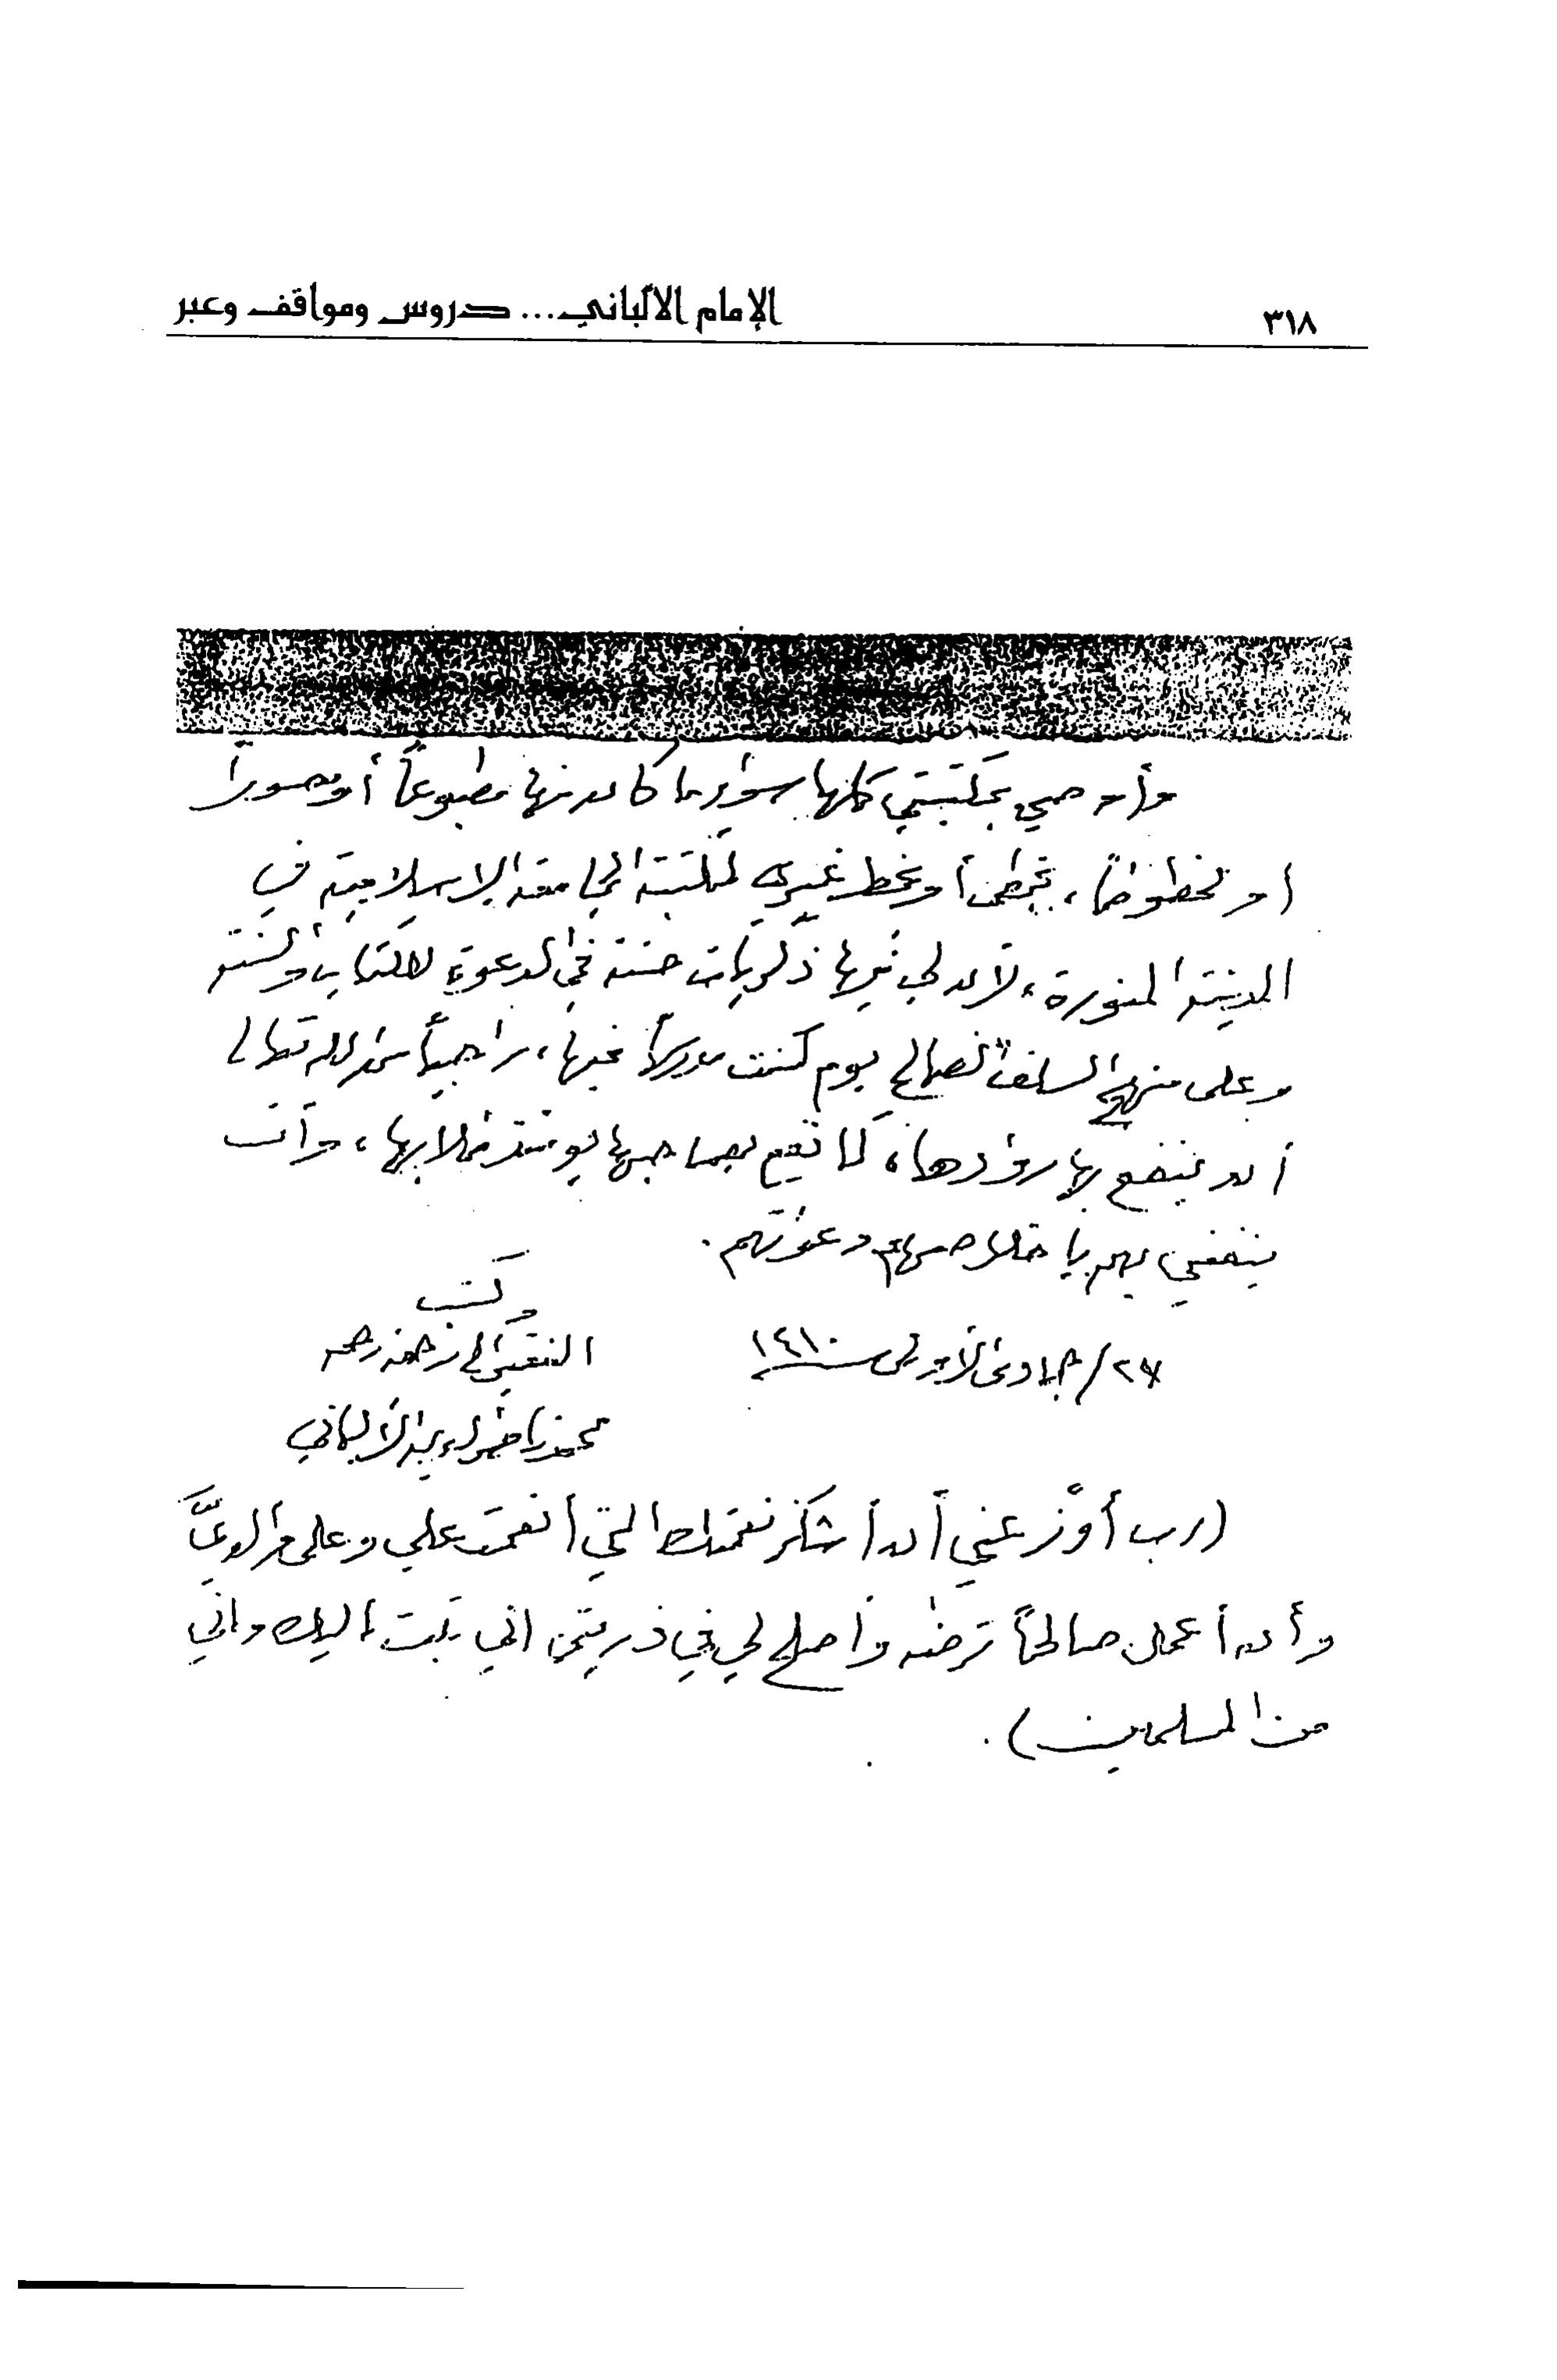 ٣١٨
الإمام الألباني... دروس ومواقف وعبر
وأوصي بمكتبتي كلها سواء ما كان منها مطبوعاً أو مصوراً
أو مخطوطاً، بخطي أو بخط غيري لمكتبة الجامعة الإسلامية في
المدينة المنورة، لأن لي فيها ذكريات حسنة في الدعوة للكتاب والسنة
وعلى منهج السلف الصالح يوم كنت مدرساً فيها، راجياً من الله تعالى
أن ينفع بها روادها، كما نفع بصاحبها يومئذ طلابها، وأن
ينفعني بهم بإخلاصهم ودعواتهم.
وكتب
٢٧/جمادى الأولى سنة ١٤١٠
الفقير إلى رحمة ربه
محمد ناصر الدين الألباني
(رب أوزعني أن أشكر نعمتك التي أنعمت علي وعلى والديَّ
وأن أعمل صالحاً ترضاه وأصلح لي في ذريتي إني تبت إليك وإني
من المسلمين).